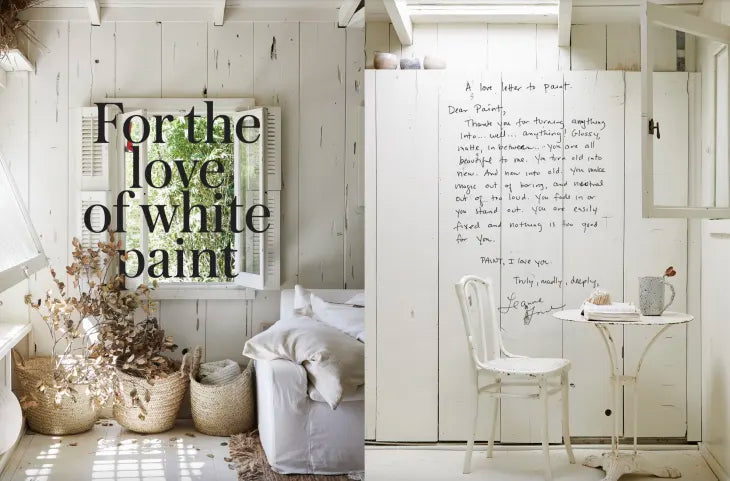 For the
love
of white
paint
A love letter to paint.
Dear Paint,
Thank you for turning anything
into... well... anything! Glossy,
matte, in between... you are all
beautiful to me. You turn old into
new. And new into old. You make
magic out of boring, and neutral
out of too loud. You fade in or
you stand out. You are easily
fixed and nothing is too good
for you.
PAINT, I love you.
Truly, madly, deeply,